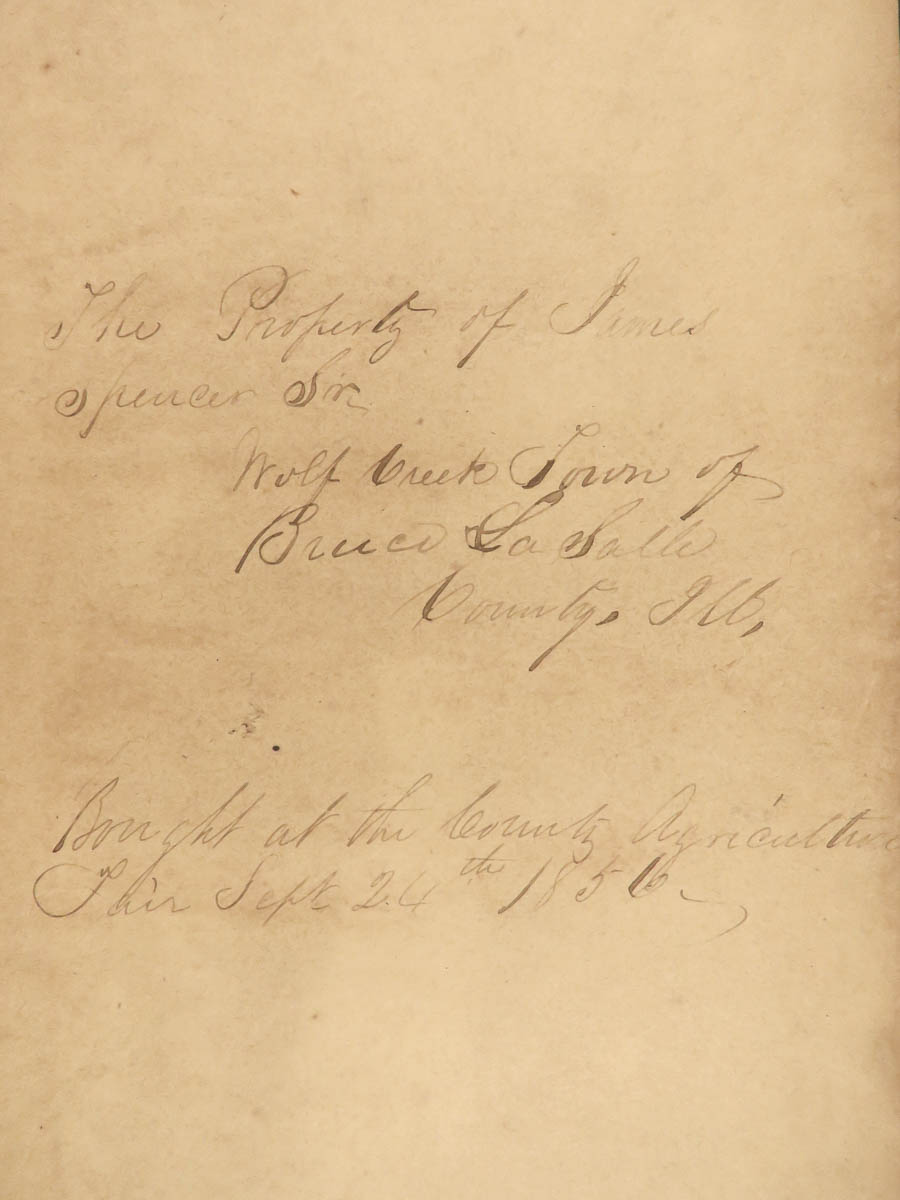 The Property of James
Spencer Sr
Wolf Creek Town of
Bruce La Salle
County. Ill,
Bought at the County Agricultural
Fair Sept 24th 1856